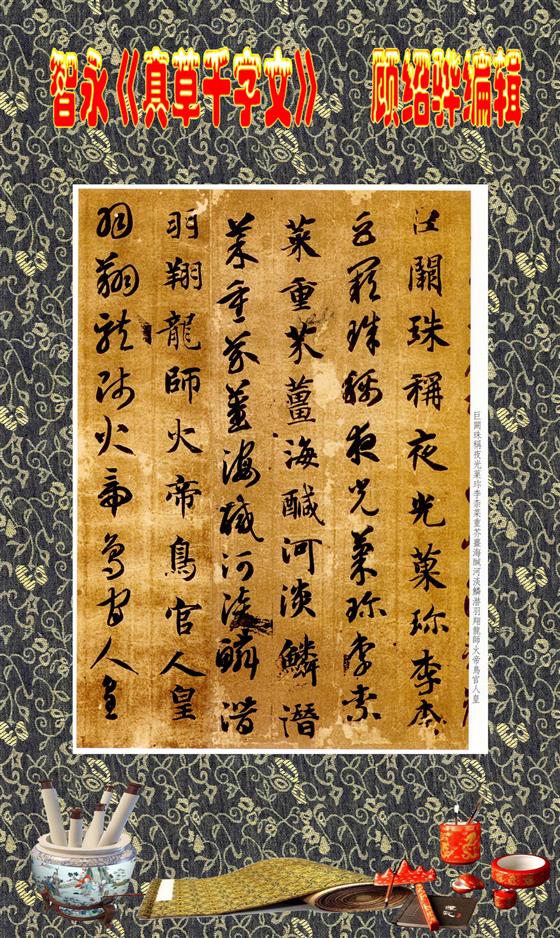 智永《真草千字文》 顾绍骅编辑
巨闕珠稱夜光菓珎李柰
巨闕珠稱夜光菓珎李柰
菜重芥薑海醎河淡鱗潛
菜重芥薑海醎河淡鱗潛
羽翔龍師火帝鳥官人皇
羽翔龍師火帝鳥官人皇
巨闕珠稱夜光菓珎李柰菜重芥薑海醎河淡鱗潜羽翔龍師火帝鳥官人皇